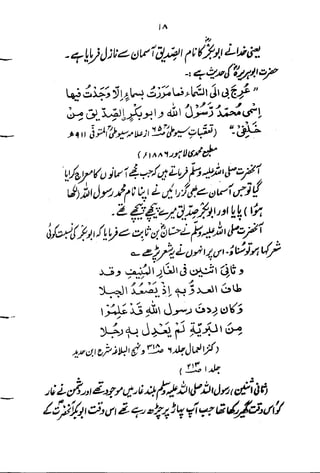 ۱۸
یعنی خدا نے ابوبکرؓ کا نام الصدیق آسمان سے نازل فرمایا ہے۔
حضرت ابوہریرہؓ کی حدیث ہے:۔
"عُرِجَ بِی اِلَی السَّمَاءِ فَمَا مَرَرْتُ بِسَمَاءٍ اِلَّا وَجَدْتُ فِیْهَا
اِسْمِیْ مُحَمَّدٌ رَّسُوْلُ اللهِ وابوبکر الصدیق مِنْ
خَلْفِیْ۔" (تعقبات سیوطی از علامہ سیوطی المتوفی ۹۱۱ھ
مطبع محمدی لاہور ۱۸۸۶ء)
آنحضرت صلی اللہ علیہ وسلم فرماتے ہیں کہ جب مجھے آسمانوں کا معراج کرایا
گیا تو جس آسمان سے بھی گزرا میں نے اپنا نام محمد رسول اللہ (لکھا
ہوا) پایا اور ابوبکر صدیق میرے پیچھے پیچھے تھے۔
آنحضرت صلی اللہ علیہ وسلم نے حسانؓ بن ثابت سے فرمایا کہ ابوبکر کی نسبت کوئی
شعر کہا ہو تو سناؤ۔ اس پر انہوں نے یہ شعر پڑھے ؎
وثانی اثنین فی الغار المنیف وقد
طاف العدوّ به اذ یصعد الجبلا
وکان ردف رسول الله قد علموا
من البریة لم یعدل به رجلا
(کنز العمال جلد ۶ ونہج البلاغہ شرح ابن حدید
جلد ۱ ص۲۱۳)
(ثانی اثنین) رسول اللہ صلی اللہ علیہ وسلم بلند غار میں موجود تھے اور دشمن نے غار
کو اس وقت گھیر رکھا تھا جب آپ پہاڑ پر چڑھ رہے تھے اس وقت ابوبکرؓ آنحضرتؐ کے